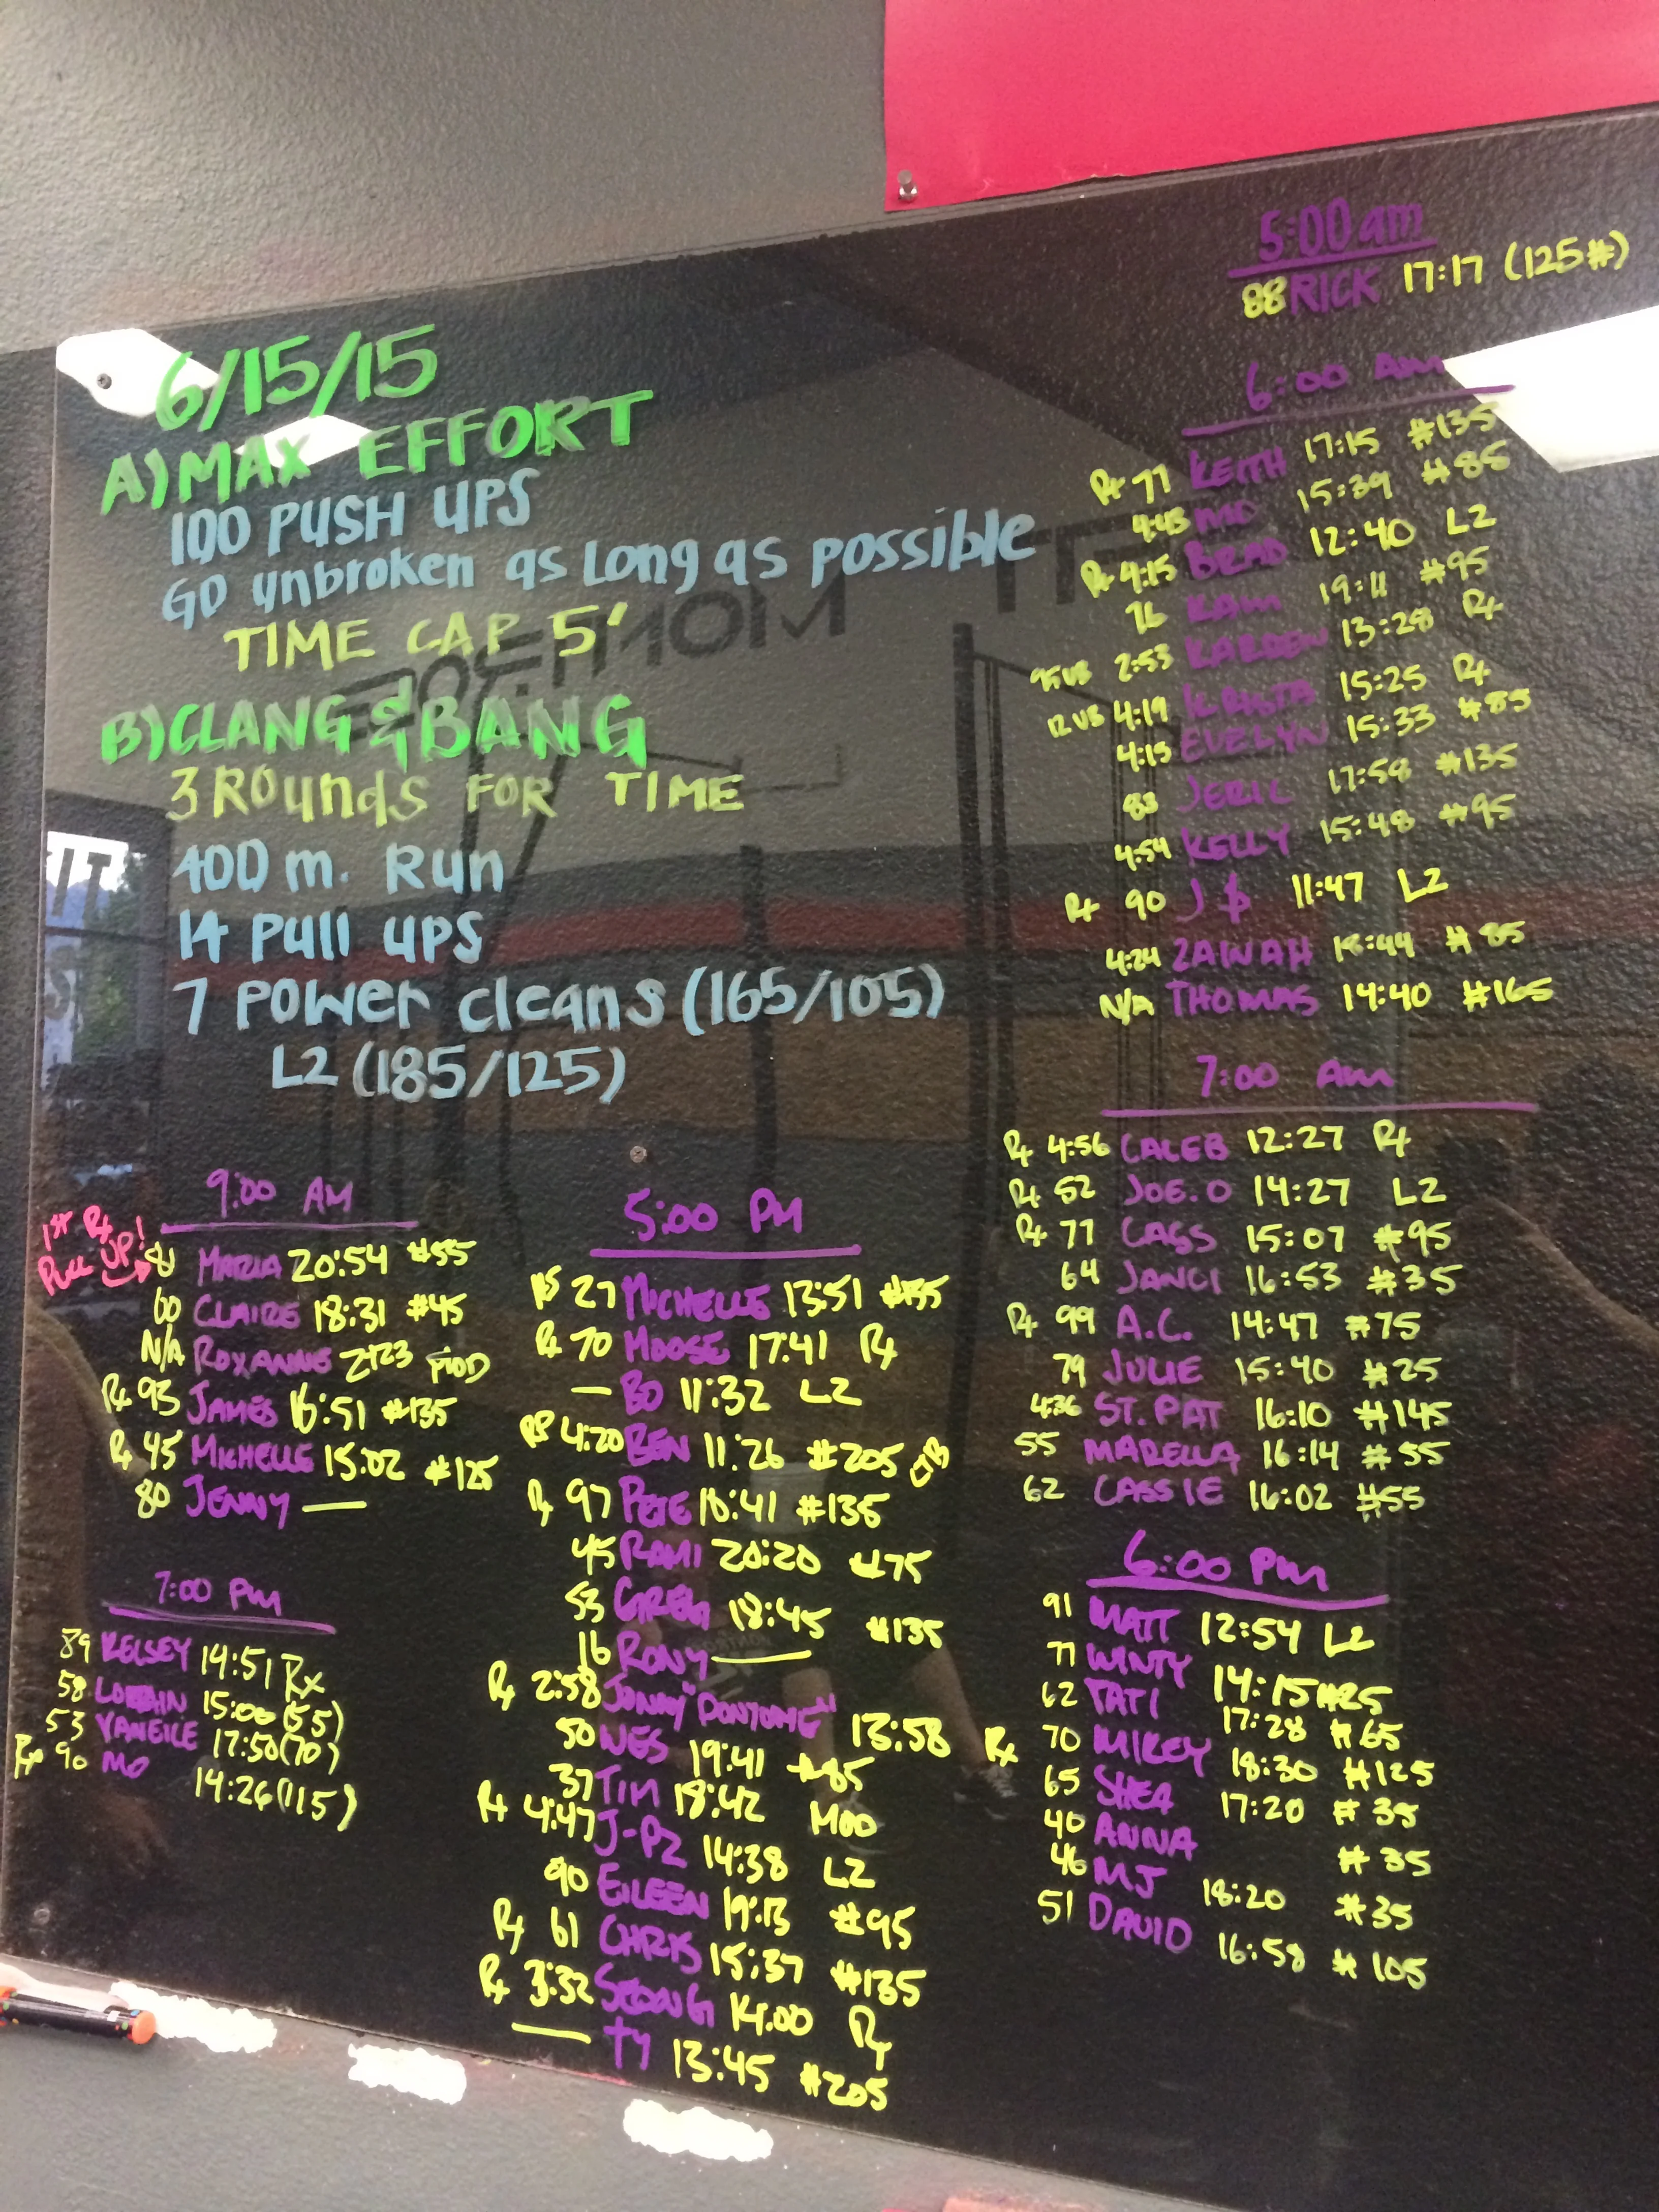 6/15/15
A) MAX EFFORT
100 PUSH UPS
GO unbroken as Long as possible
TIME CAP 5'
B) CLANG & BANG
3 Rounds FOR TIME
400 m. Run
14 Pull ups
7 Power cleans (165/105)
L2 (185/125)
5:00 am
88 RICK 17:17 (125#)
6:00 AM
Rx 77 KEITH 17:15 #135
4:43 MO 15:39 #85
Rx 4:15 BRAD 12:40 L2
76 KAM 19:11 #95
2:53 KARDEN 13:28 Rx
4:19 KRISTA 15:25 Rx
4:15 EVELYN 15:33 #85
83 JERIL 17:58 #135
4:54 KELLY 15:48 #95
Rx 90 J$ 11:47 L2
4:24 ZAINAH 18:44 #85
N/A THOMAS 14:40 #165
7:00 Am
Rx 4:56 CALEB 12:27 Rx
Rx 52 JOE.O 14:27 L2
Rx 77 CASS 15:07 #95
64 JANCI 16:53 #35
Rx 99 A.C. 14:47 #75
79 JULIE 15:40 #25
4:36 ST. PAT 16:10 #145
55 MARELLA 16:14 #55
62 CASSIE 16:02 #55
9:00 AM
1ST Rx
PULL UP!
81 MARIA 20:54 #55
60 CLAIRE 18:31 #45
N/A ROXANNE 21:23 MOD
Rx 93 JAMES 16:51 #135
Rx 45 MICHELLE 15:02 #125
80 JENNY —
5:00 PM
27 MICHELLE 13:51 #135
Rx 70 MOOSE 17:41 Rx
— BO 11:32 L2
4:20 BEN 11:26 #205 CTB
Rx 97 PETE 18:41 #135
45 RAMI 20:20 #75
53 GREG 18:45 #135
16 RONY —
Rx 2:58 JONNY "DONTOME" 13:58
50 WES 19:41 #85
37 TIM 18:42 MOD
Rx 4:47 J-PZ 14:38 L2
90 EILEEN 19:13 #95
Rx 61 CHRIS 15:37 #135
Rx 3:32 SEONG 14:00 Rx
— TY 13:45 #205
7:00 PM
89 KELSEY 14:51 Rx
58 15:00 (55)
53 VANEILE 17:50 (70)
Rx 90 MO 14:26 (115)
6:00 Pm
91 MATT 12:54 L2
77 WINTY 14:15 #25
62 TATI 17:28 #65
Rx 70 MIKEY 18:30 #125
65 SHEA 17:20 #35
40 ANNA #35
46 MJ 18:20 #35
51 DAVID 16:58 #105